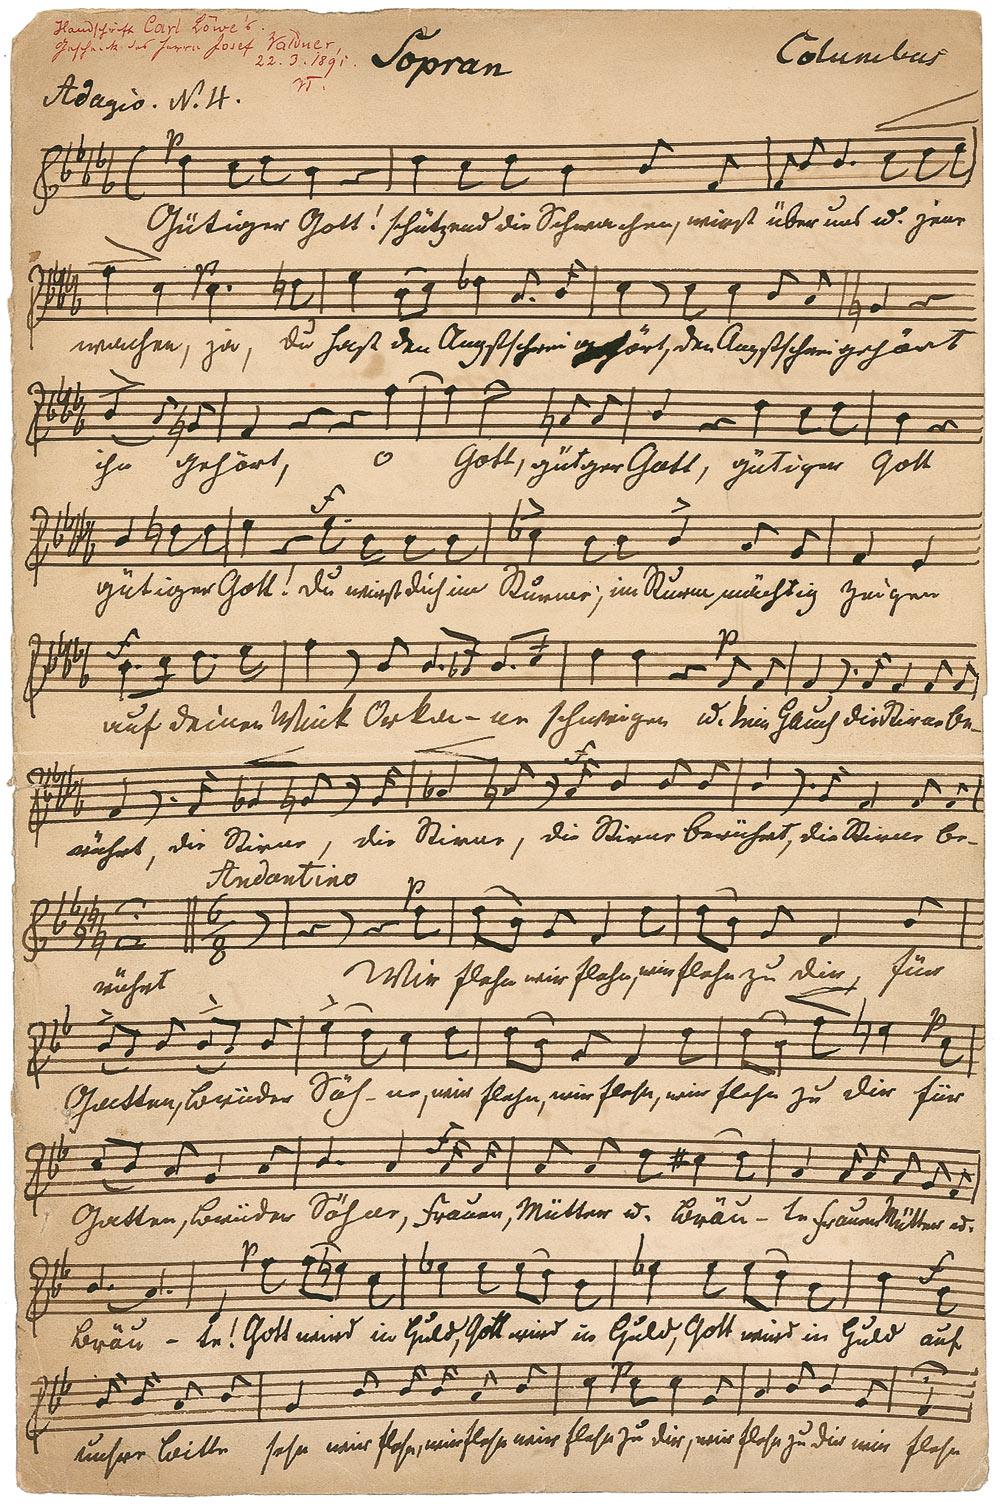 Handschrift Carl Löwe's.
Geschenk des Herrn Josef Waldner,
22.3.1891.
Sopran
Columbus
Adagio. N. 4.
p
Gütiger Gott! schützend die Schwachen, wirst über uns u. jene
p
wachen, ja, du hast den Angstschrei gehört, den Angstschrei gehört
ihn gehört, o Gott, gütger Gott, gütiger Gott
f
gütiger Gott! Du wirst dich im Sturme, im Sturm mächtig zeigen
f p
auf deinen Wink Orka-ne schweigen u. kein Hauch die Stirne be-
f
rührt, die Stirne, die Stirne, die Stirne berührt, die Stirne be-
Andantino
6/8 p
rührt Wir flehn wir flehn, wir flehn zu dir, für
p
Gatten, Brüder Söh-ne, wir flehn, wir flehn, wir flehn zu dir für
f
Gatten, Brüder Söhne, Frauen, Mütter u. Bräu-te Frauen Mütter u.
p f
Bräu-te! Gott wird in Huld, Gott wird in Huld, Gott wird in Huld auf
p
unsre Bitte sehn wir flehn, wir flehn wir flehn zu dir, wir flehn zu dir wir flehn